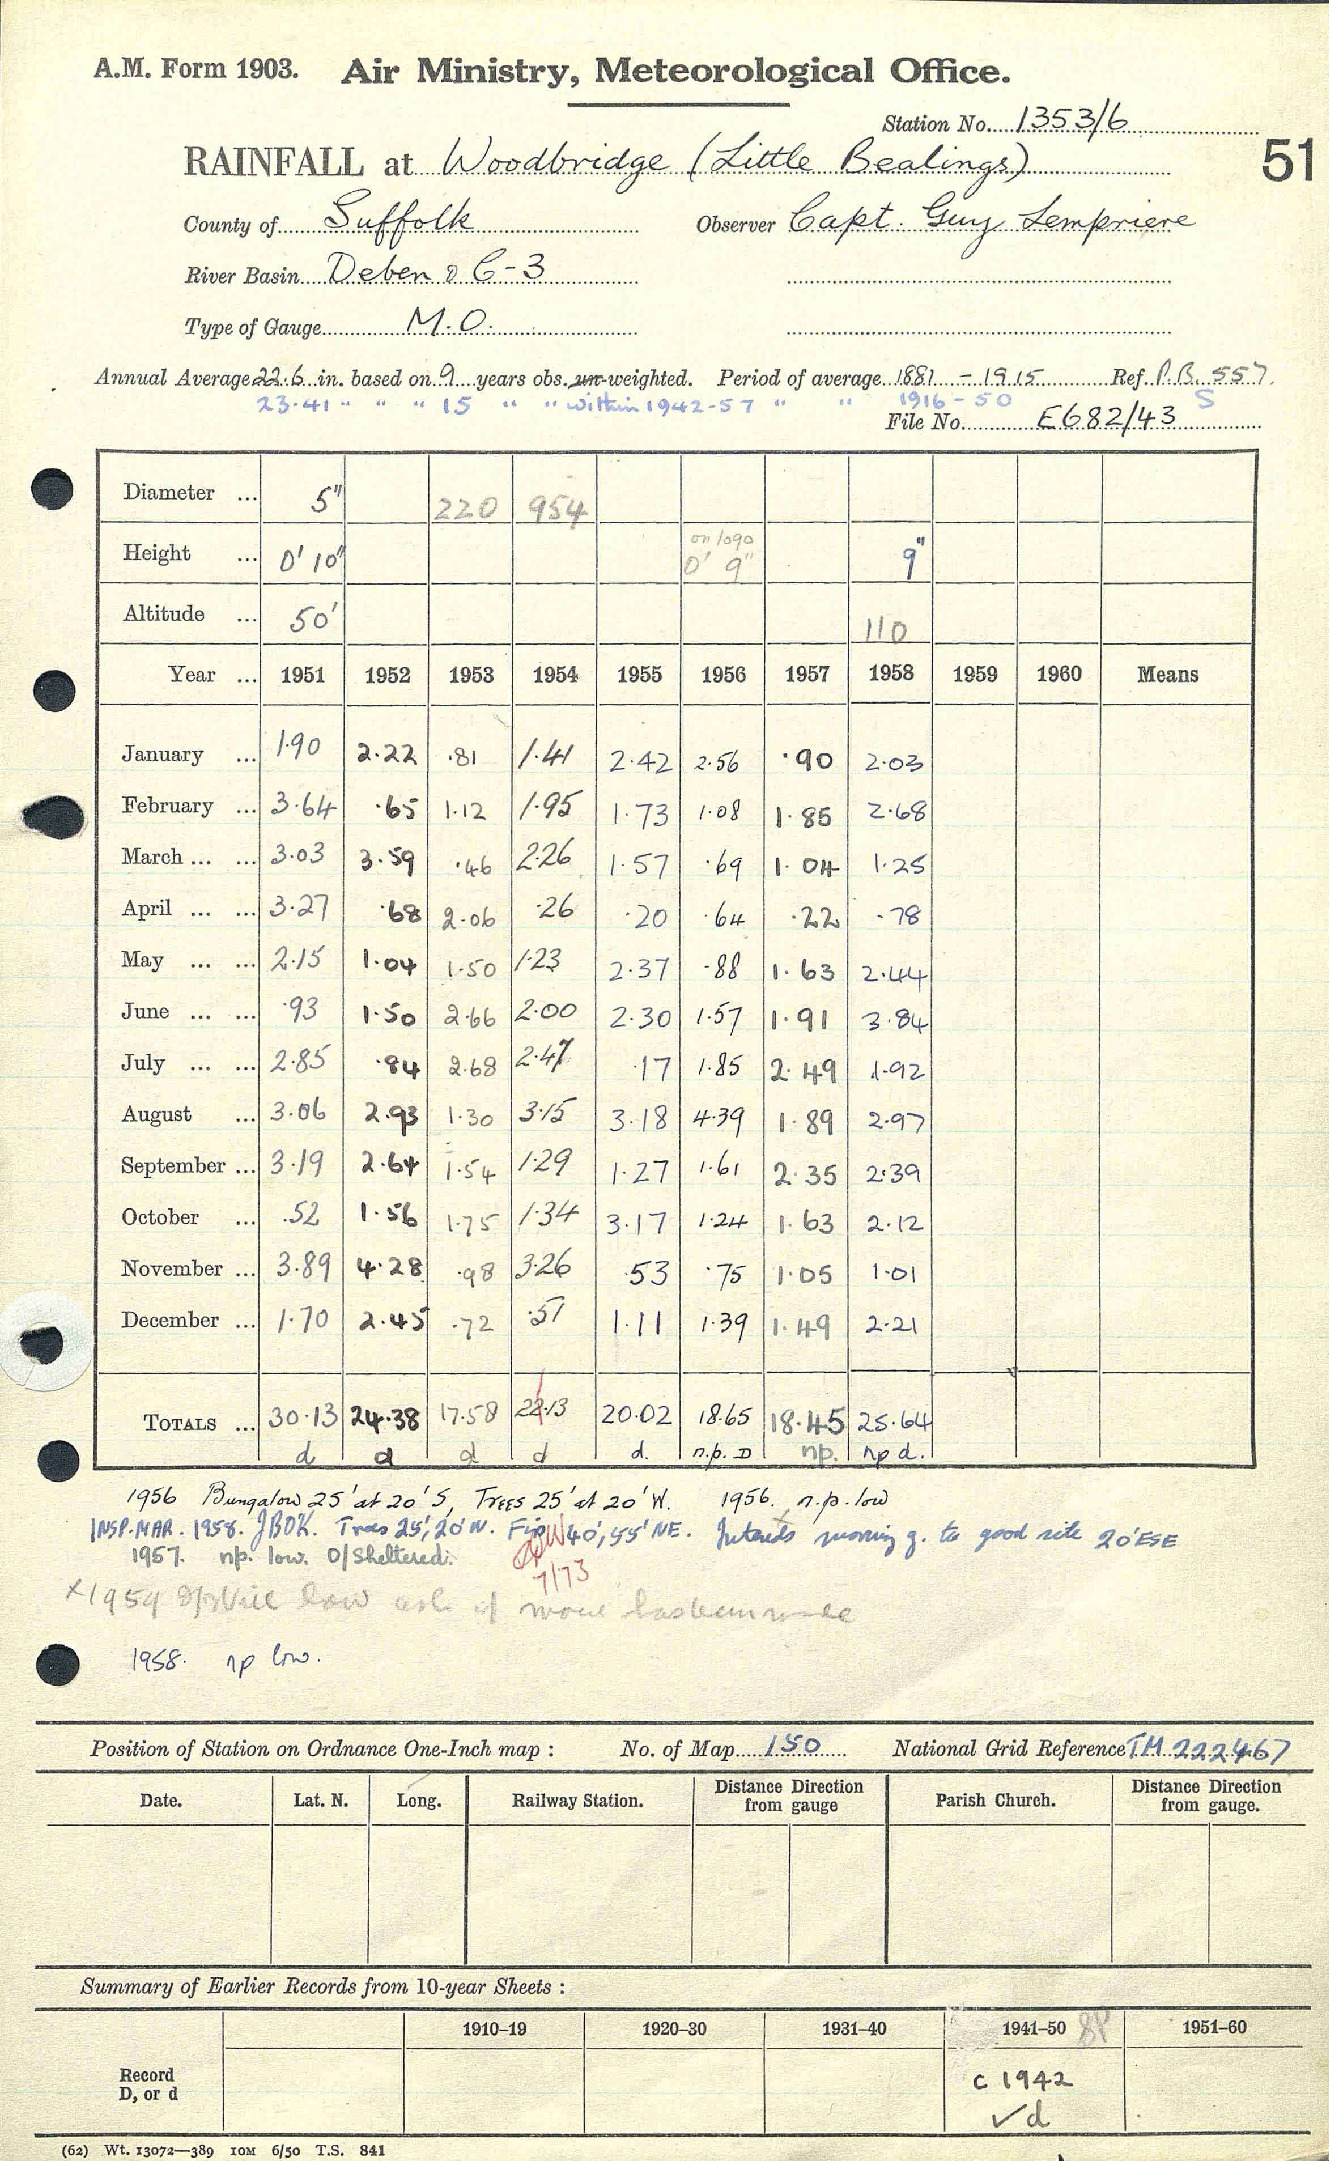 A.M. Form 1903. Air Ministry, Meteorological Office.
Station No. 1353/6
RAINFALL at Woodbridge (Little Bealings)
51
County of Suffolk Observer Capt. Guy Lempriere
River Basin Deben & C-3
Type of Gauge M.O.
Annual Average 22.6 in. based on 9 years obs. un-weighted. Period of average 1881 - 1915 Ref. P.B. 557.
23.41 " " " 15 " " within 1942-57 " " 1916-50 S
File No. E682/43
Diameter ... 5" 220 954
Height ... 0' 10" 0' 9" 9"
Altitude ... 50' 110
Year ... 1951 1952 1953 1954 1955 1956 1957 1958 1959 1960 Means
January ... 1.90 2.22 .81 1.41 2.42 2.56 .90 2.03
February ... 3.64 .65 1.12 1.95 1.73 1.08 1.85 2.68
March ... ... 3.03 3.59 .46 2.26 1.57 .69 1.04 1.25
April ... ... 3.27 .68 2.06 .26 .20 .64 .22 .78
May ... ... 2.15 1.04 1.50 1.23 2.37 .88 1.63 2.44
June ... ... .93 1.50 2.66 2.00 2.30 1.57 1.91 3.84
July ... ... 2.85 .84 2.68 2.47 .17 1.85 2.49 1.92
August ... 3.06 2.93 1.30 3.15 3.18 4.39 1.89 2.97
September ... 3.19 2.64 1.54 1.29 1.27 1.61 2.35 2.39
October ... .52 1.56 1.75 1.34 3.17 1.24 1.63 2.12
November ... 3.89 4.28 .98 3.26 .53 .75 1.05 1.01
December ... 1.70 2.45 .72 .51 1.11 1.39 1.49 2.21
TOTALS ... 30.13 24.38 17.58 22.13 20.02 18.65 18.45 25.64
d d d d d. n.p. D np. np d.
1956 Bungalow 25' at 20' S, Trees 25' at 20' W. 1956. n.p. low
INSP. MAR. 1958. Trees 25', 20' W. 40', 55' NE. Intends moving g. to good site 20' ESE
1957. np. low. O/Sheltered.
7/73
x1959 low of
1958. np low.
Position of Station on Ordnance One-Inch map : No. of Map 150 National Grid Reference TM 222467
Date. Lat. N. Long. Railway Station. Distance Direction from gauge Parish Church. Distance Direction from gauge.
Summary of Earlier Records from 10-year Sheets :
1910–19 1920–30 1931–40 1941–50 1951–60
Record
D, or d
c 1942
✓d
(62) Wt. 13072—389 10M 6/50 T.S. 841